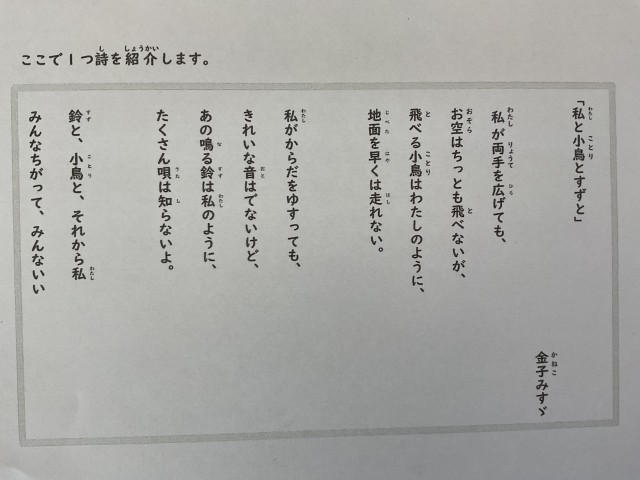 ここで1つ詩を紹介します。
「私と小鳥とすずと」
金子みすゞ
私が両手を広げても、
お空はちっとも飛べないが、
飛べる小鳥はわたしのように、
地面を早くは走れない。
私がからだをゆすっても、
きれいな音はでないけど、
あの鳴る鈴は私のように、
たくさん唄は知らないよ。
鈴と、小鳥と、それから私
みんなちがって、みんないい